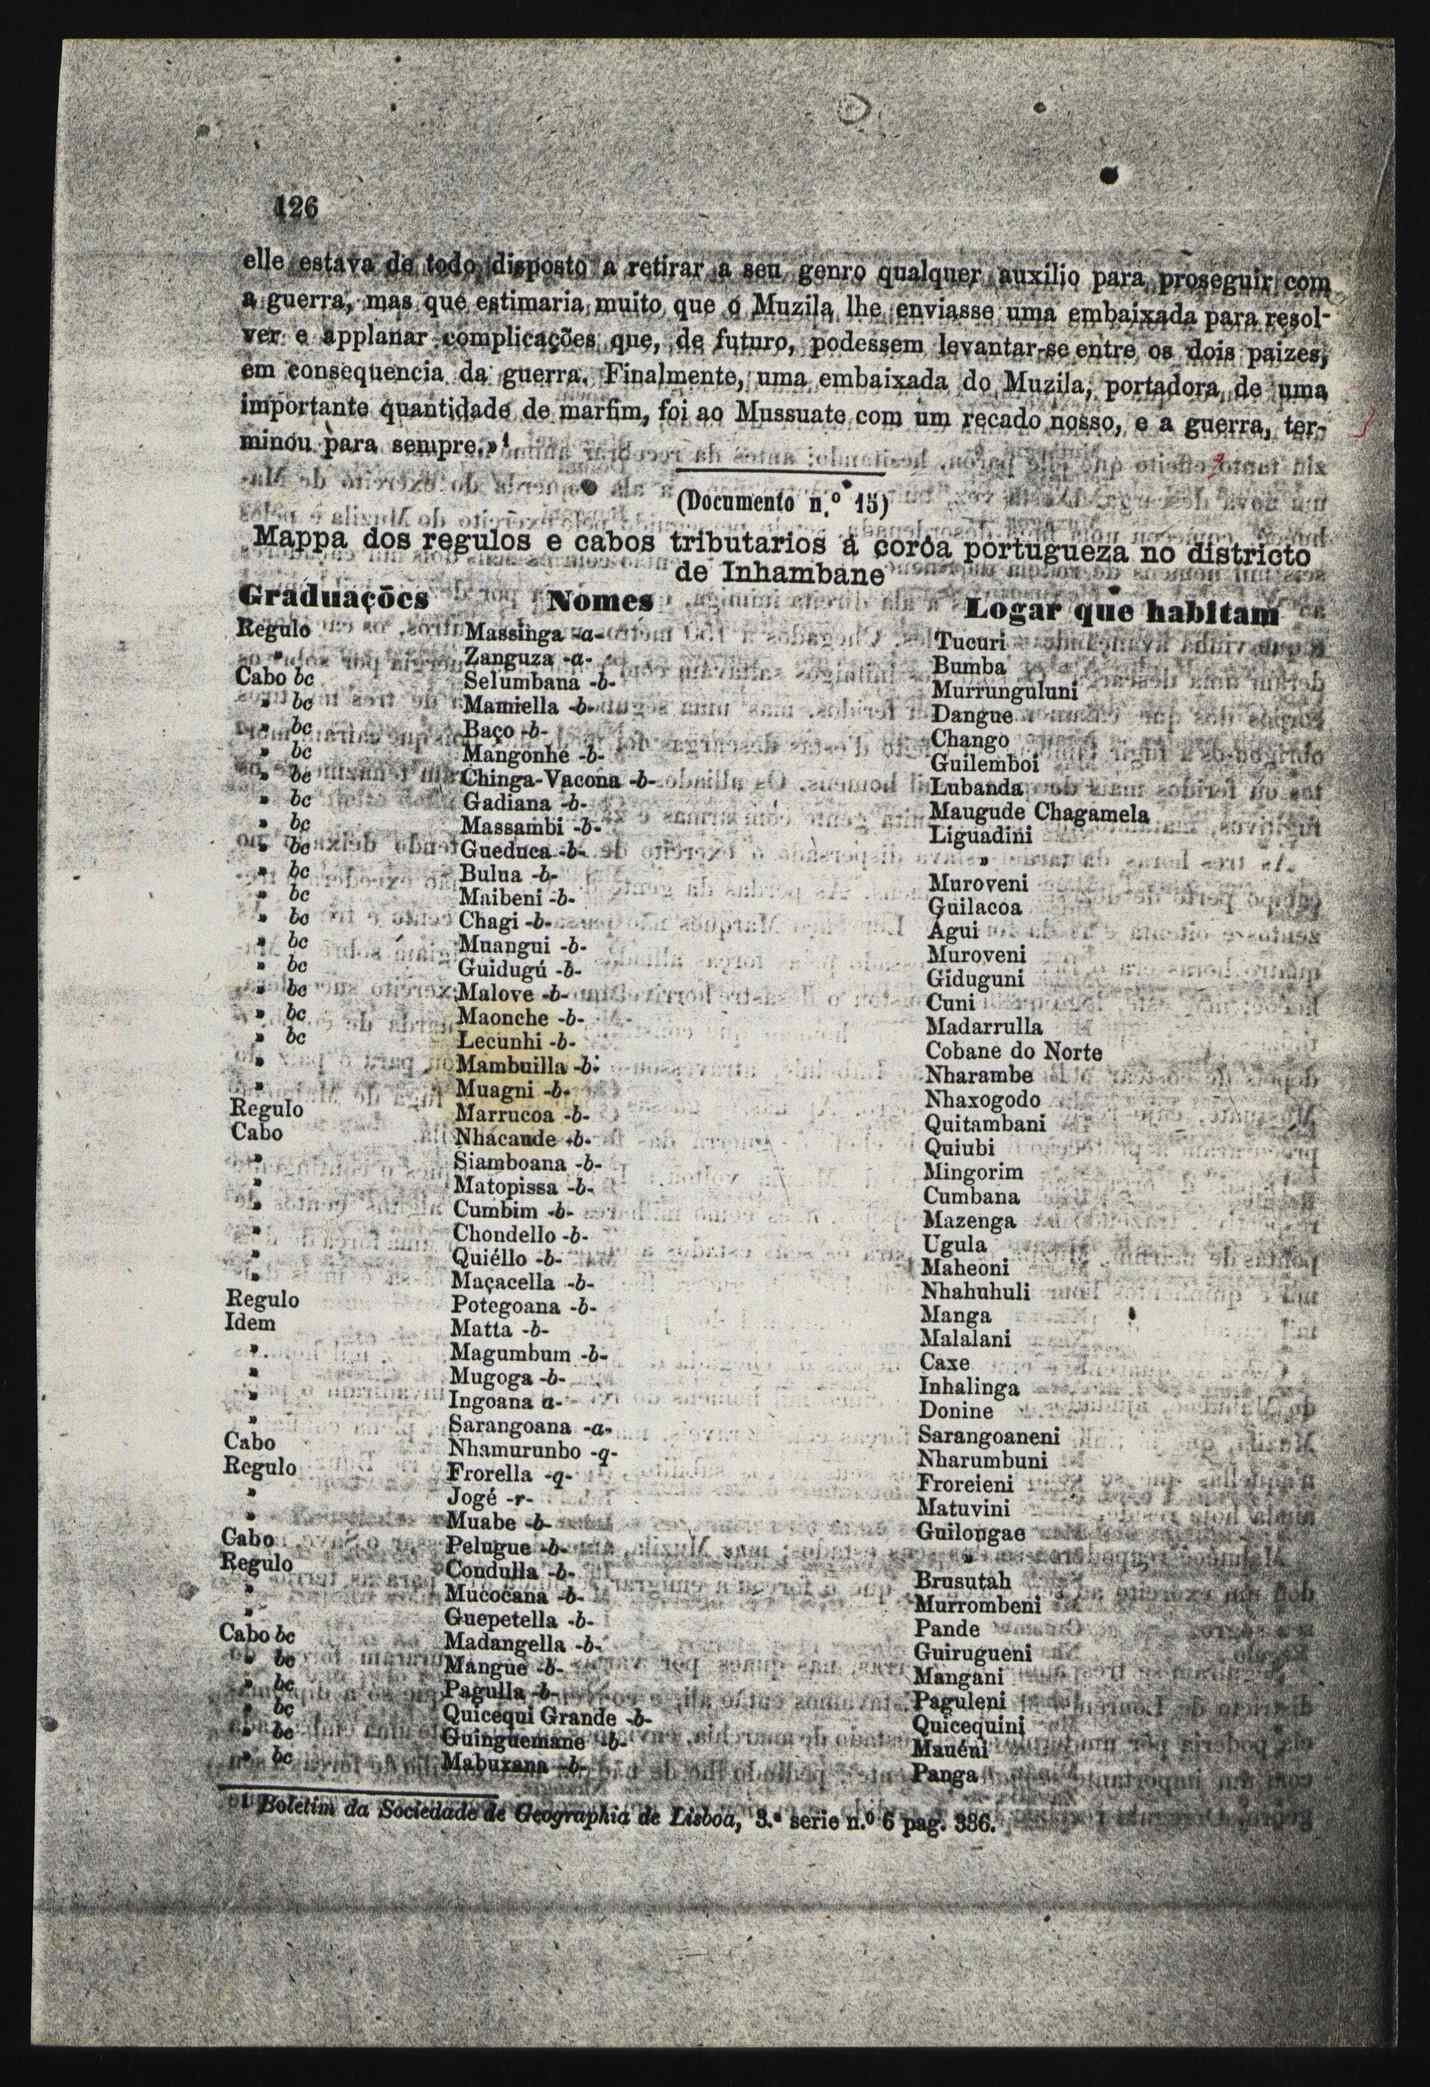 126
elle estava de todo disposto a retirar a seu genro qualquer auxilio para proseguir com
a guerra, mas que estimaria muito que o Muzila lhe enviasse uma embaixada para resol-
ver e applanar complicações que, de futuro, podessem levantar-se entre os dois paizes,
em consequencia da guerra. Finalmente, uma embaixada do Muzila, portadora de uma
importante quantidade de marfim, foi ao Mussuate com um recado nosso, e a guerra, ter-
minou para sempre.»¹
(Documento n.º 15)
Mappa dos regulos e cabos tributarios á corôa portugueza no districto
de Inhambane
Graduações Nomes Logar que habitam
Regulo Massinga -a- Tucuri
» Zanguza -a- Bumba
Cabo bc Selumbana -b- Murrunguluni
» bc Mamiella -b- Dangue
» bc Baço -b- Chango
» bc Mangonhé -b- Guilemboi
» bc Chinga-Vacona -b- Lubanda
» bc Gadiana -b- Maugude Chagamela
» bc Massambi -b- Liguadini
» bc Gueduca -b- »
» bc Bulua -b- Muroveni
» bc Maibeni -b- Guilacoa
» bc Chagi -b- Águi
» bc Muangui -b- Muroveni
» bc Guidugú -b- Giduguni
» bc Malove -b- Cuni
» bc Maonche -b- Madarrulla
» bc Lecunhi -b- Cobane do Norte
» Mambuilla -b- Nharambe
» Muagni -b- Nhaxogodo
Regulo Marrucoa -b- Quitambani
Cabo Nhacaude -b- Quiubi
» Siamboana -b- Mingorim
» Matopissa -b- Cumbana
» Cumbim -b- Mazenga
» Chondello -b- Ugula
» Quiéllo -b- Maheoni
» Maçacella -b- Nhahuhuli
Regulo Potegoana -b- Manga
Idem Matta -b- Malalani
» Magumbum -b- Caxe
» Mugoga -b- Inhalinga
» Ingoana a- Donine
» Sarangoana -a- Sarangoaneni
Cabo Nhamurunbo -q- Nharumbuni
Regulo Frorella -q- Froreieni
» Jogé -r- Matuvini
» Muabe -b- Guilongae
Cabo Pelugue -b- »
Regulo Condulla -b- Brusutah
» Mucocana -b- Murrombeni
» Guepetella -b- Pande
Cabo bc Madangella -b- Guirugueni
» bc Mangue -b- Mangani
» bc Pagulla -b- Paguleni
» bc Quicequi Grande -b- Quicequini
» bc Guinguemane -b- Mauéni
» bc Mabuxana -b- Panga
¹ Boletim da Sociedade de Geographia de Lisboa, 3.ª serie n.º 6 pag. 336.